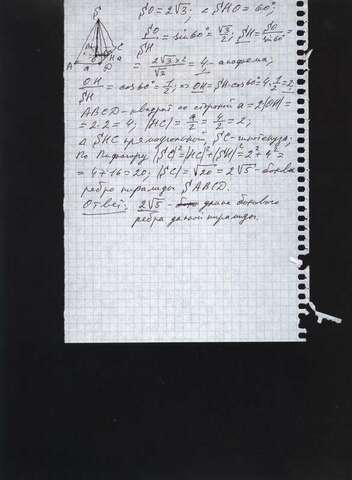 S
SO = 2√3, ∠SHO = 60°,
SO/SH = sin 60° = √3/2; SH = SO/sin 60° =
= 2√3×2/√3 = 4 - апофема,
OH/SH = cos 60° = 1/2; ⇒ OH = SH·cos 60° = 4·1/2 = 2,
ABCD - квадрат со стороной a = 2|OH| =
= 2·2 = 4; |HC| = a/2 = 4/2 = 2;
Δ SHC прямоугольный, SC - гипотенуза,
По Пифагору |SC|² = |HC|² + |SH|² = 2² + 4² =
= 4 + 16 = 20; |SC| = √20 = 2√5 - боковое
ребро пирамиды SABCD.
Ответ: 2√5 - длина бокового
ребра данной пирамиды.
A a D H a C